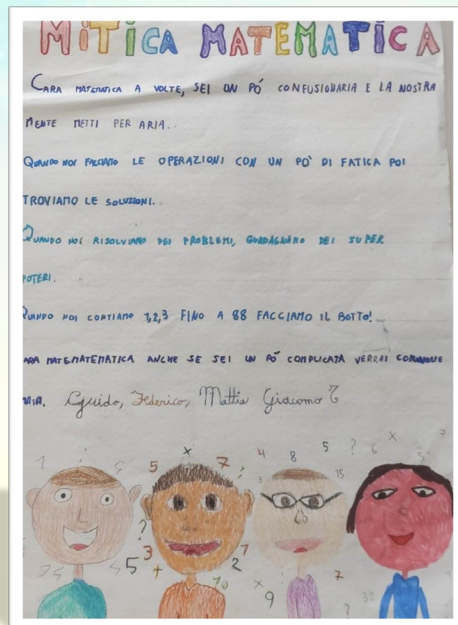 MITICA MATEMATICA
CARA MATEMATICA A VOLTE, SEI UN PÓ CONFUSIONARIA E LA NOSTRA
MENTE METTI PER ARIA..
QUANDO NOI FACCIAMO LE OPERAZIONI CON UN PO' DI FATICA POI
TROVIAMO LE SOLUZIONI.
QUANDO NOI RISOLVIAMO DEI PROBLEMI, GUADAGNAMO DEI SUPER
POTERI.
QUANDO NOI CONTIAMO 1,2,3 FINO A 88 FACCIAMO IL BOTTO!
ARA MATEMATEMATICA ANCHE SE SEI UN PÓ COMPLICATA VERRAI COMUNQUE
MIA. Guido, Federico, Mattia Giacomo T
1 : 5 X 7 : 4 8 5 ? 6 X 7
? 3 5 + 1 2 10 X 9 7 ?